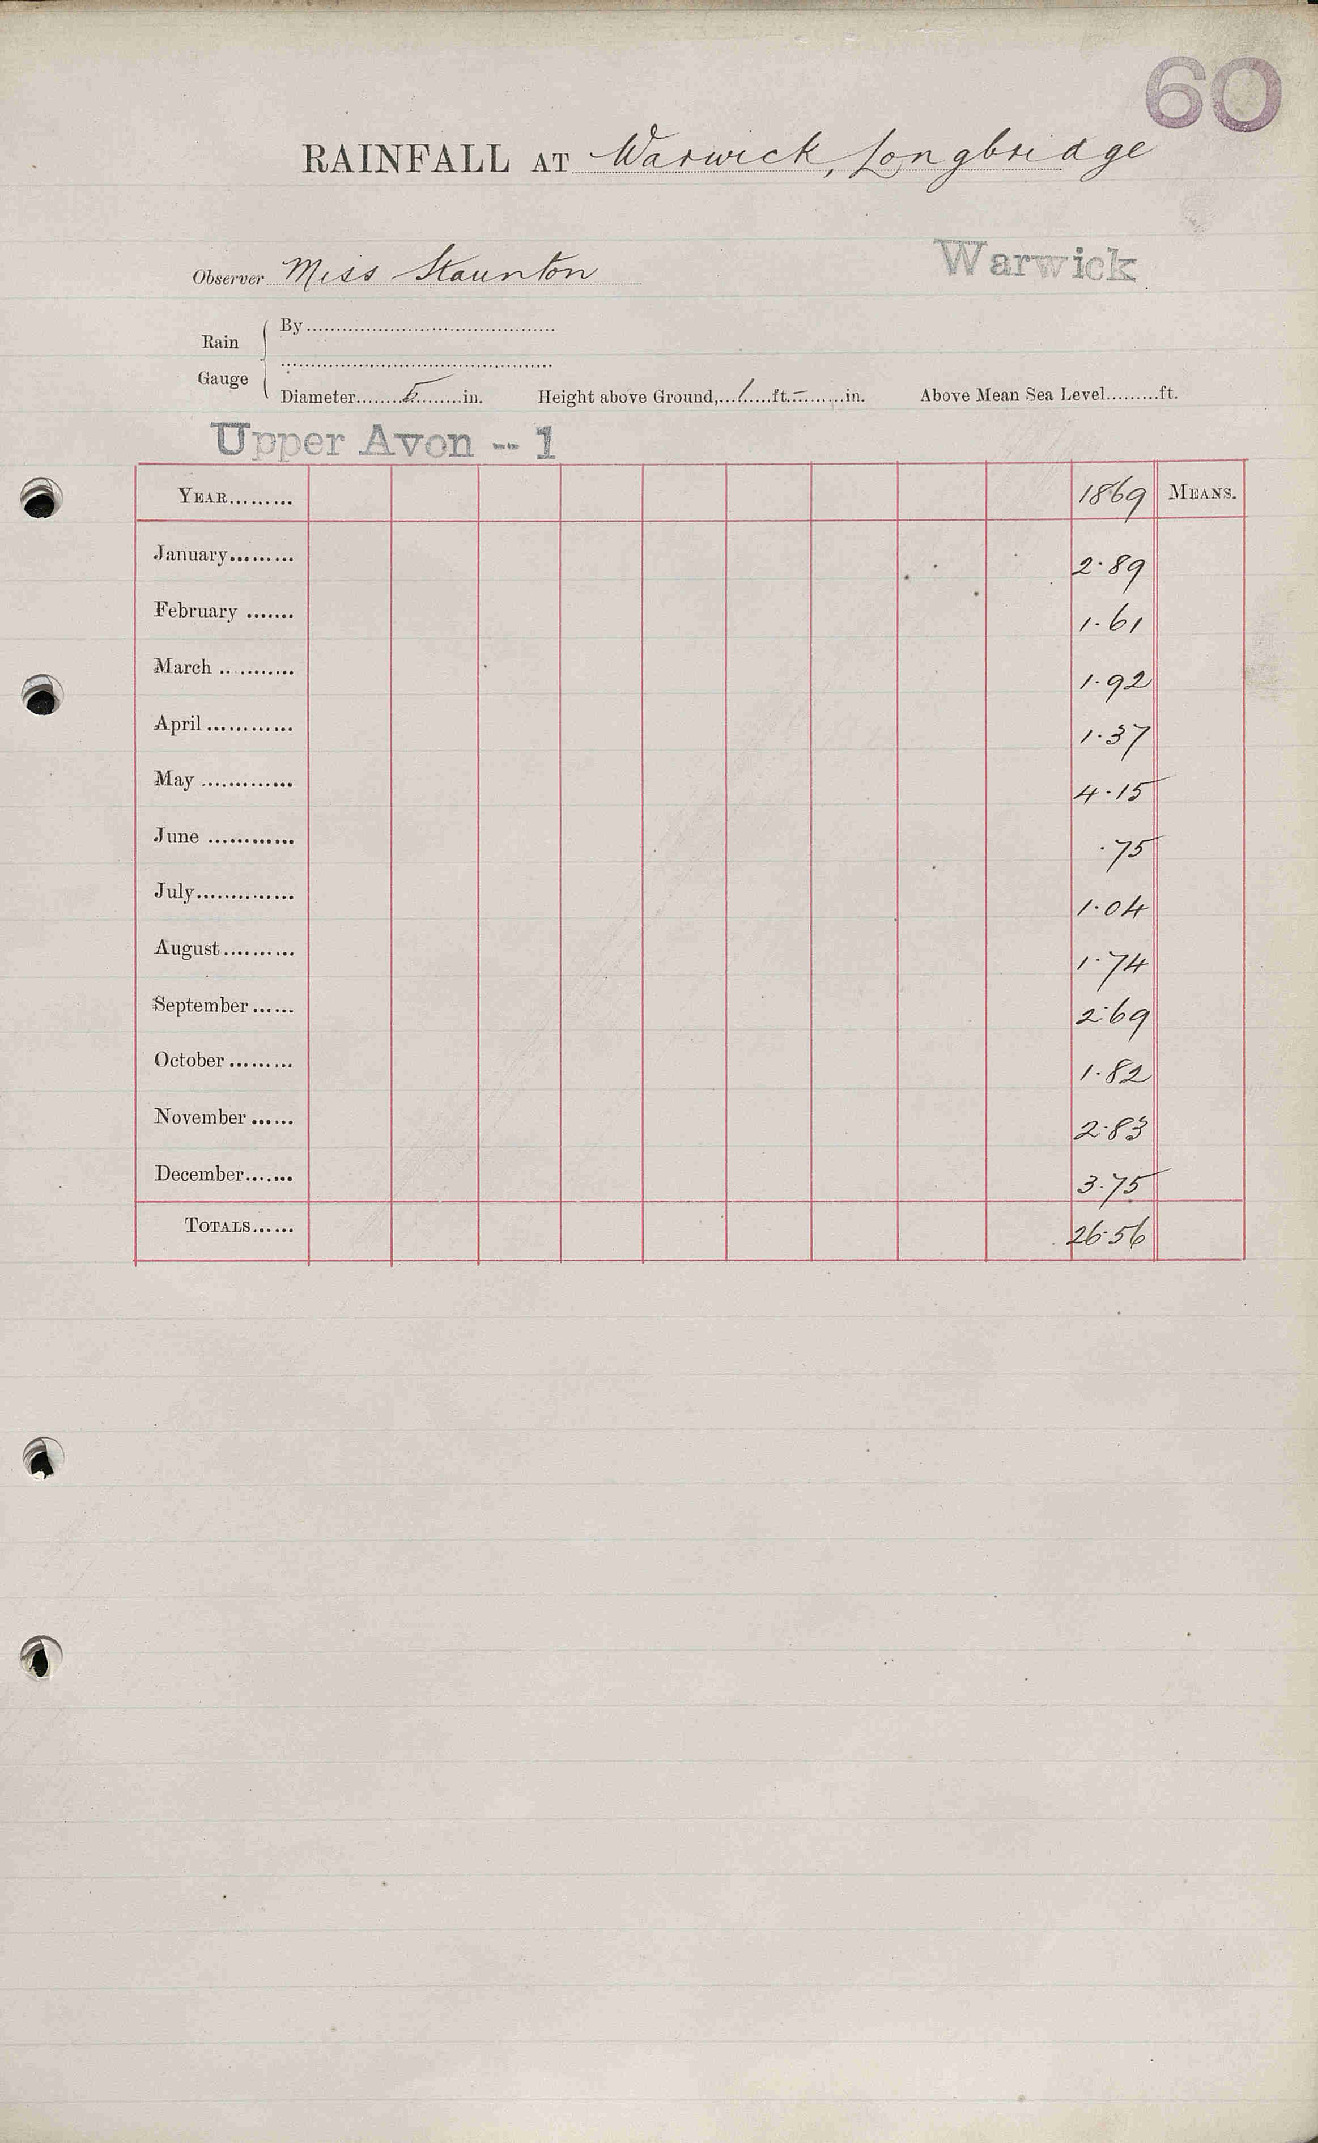 60
RAINFALL AT Warwick, Longbridge
Observer Miss Staunton
Warwick
Rain Gauge
By
Diameter 5 in. Height above Ground, 1 ft. - in. Above Mean Sea Level ft.
Upper Avon -- 1
YEAR 1869 MEANS.
January 2.89
February 1.61
March 1.92
April 1.37
May 4.15
June .75
July 1.04
August 1.74
September 2.69
October 1.82
November 2.83
December 3.75
TOTALS 26.56